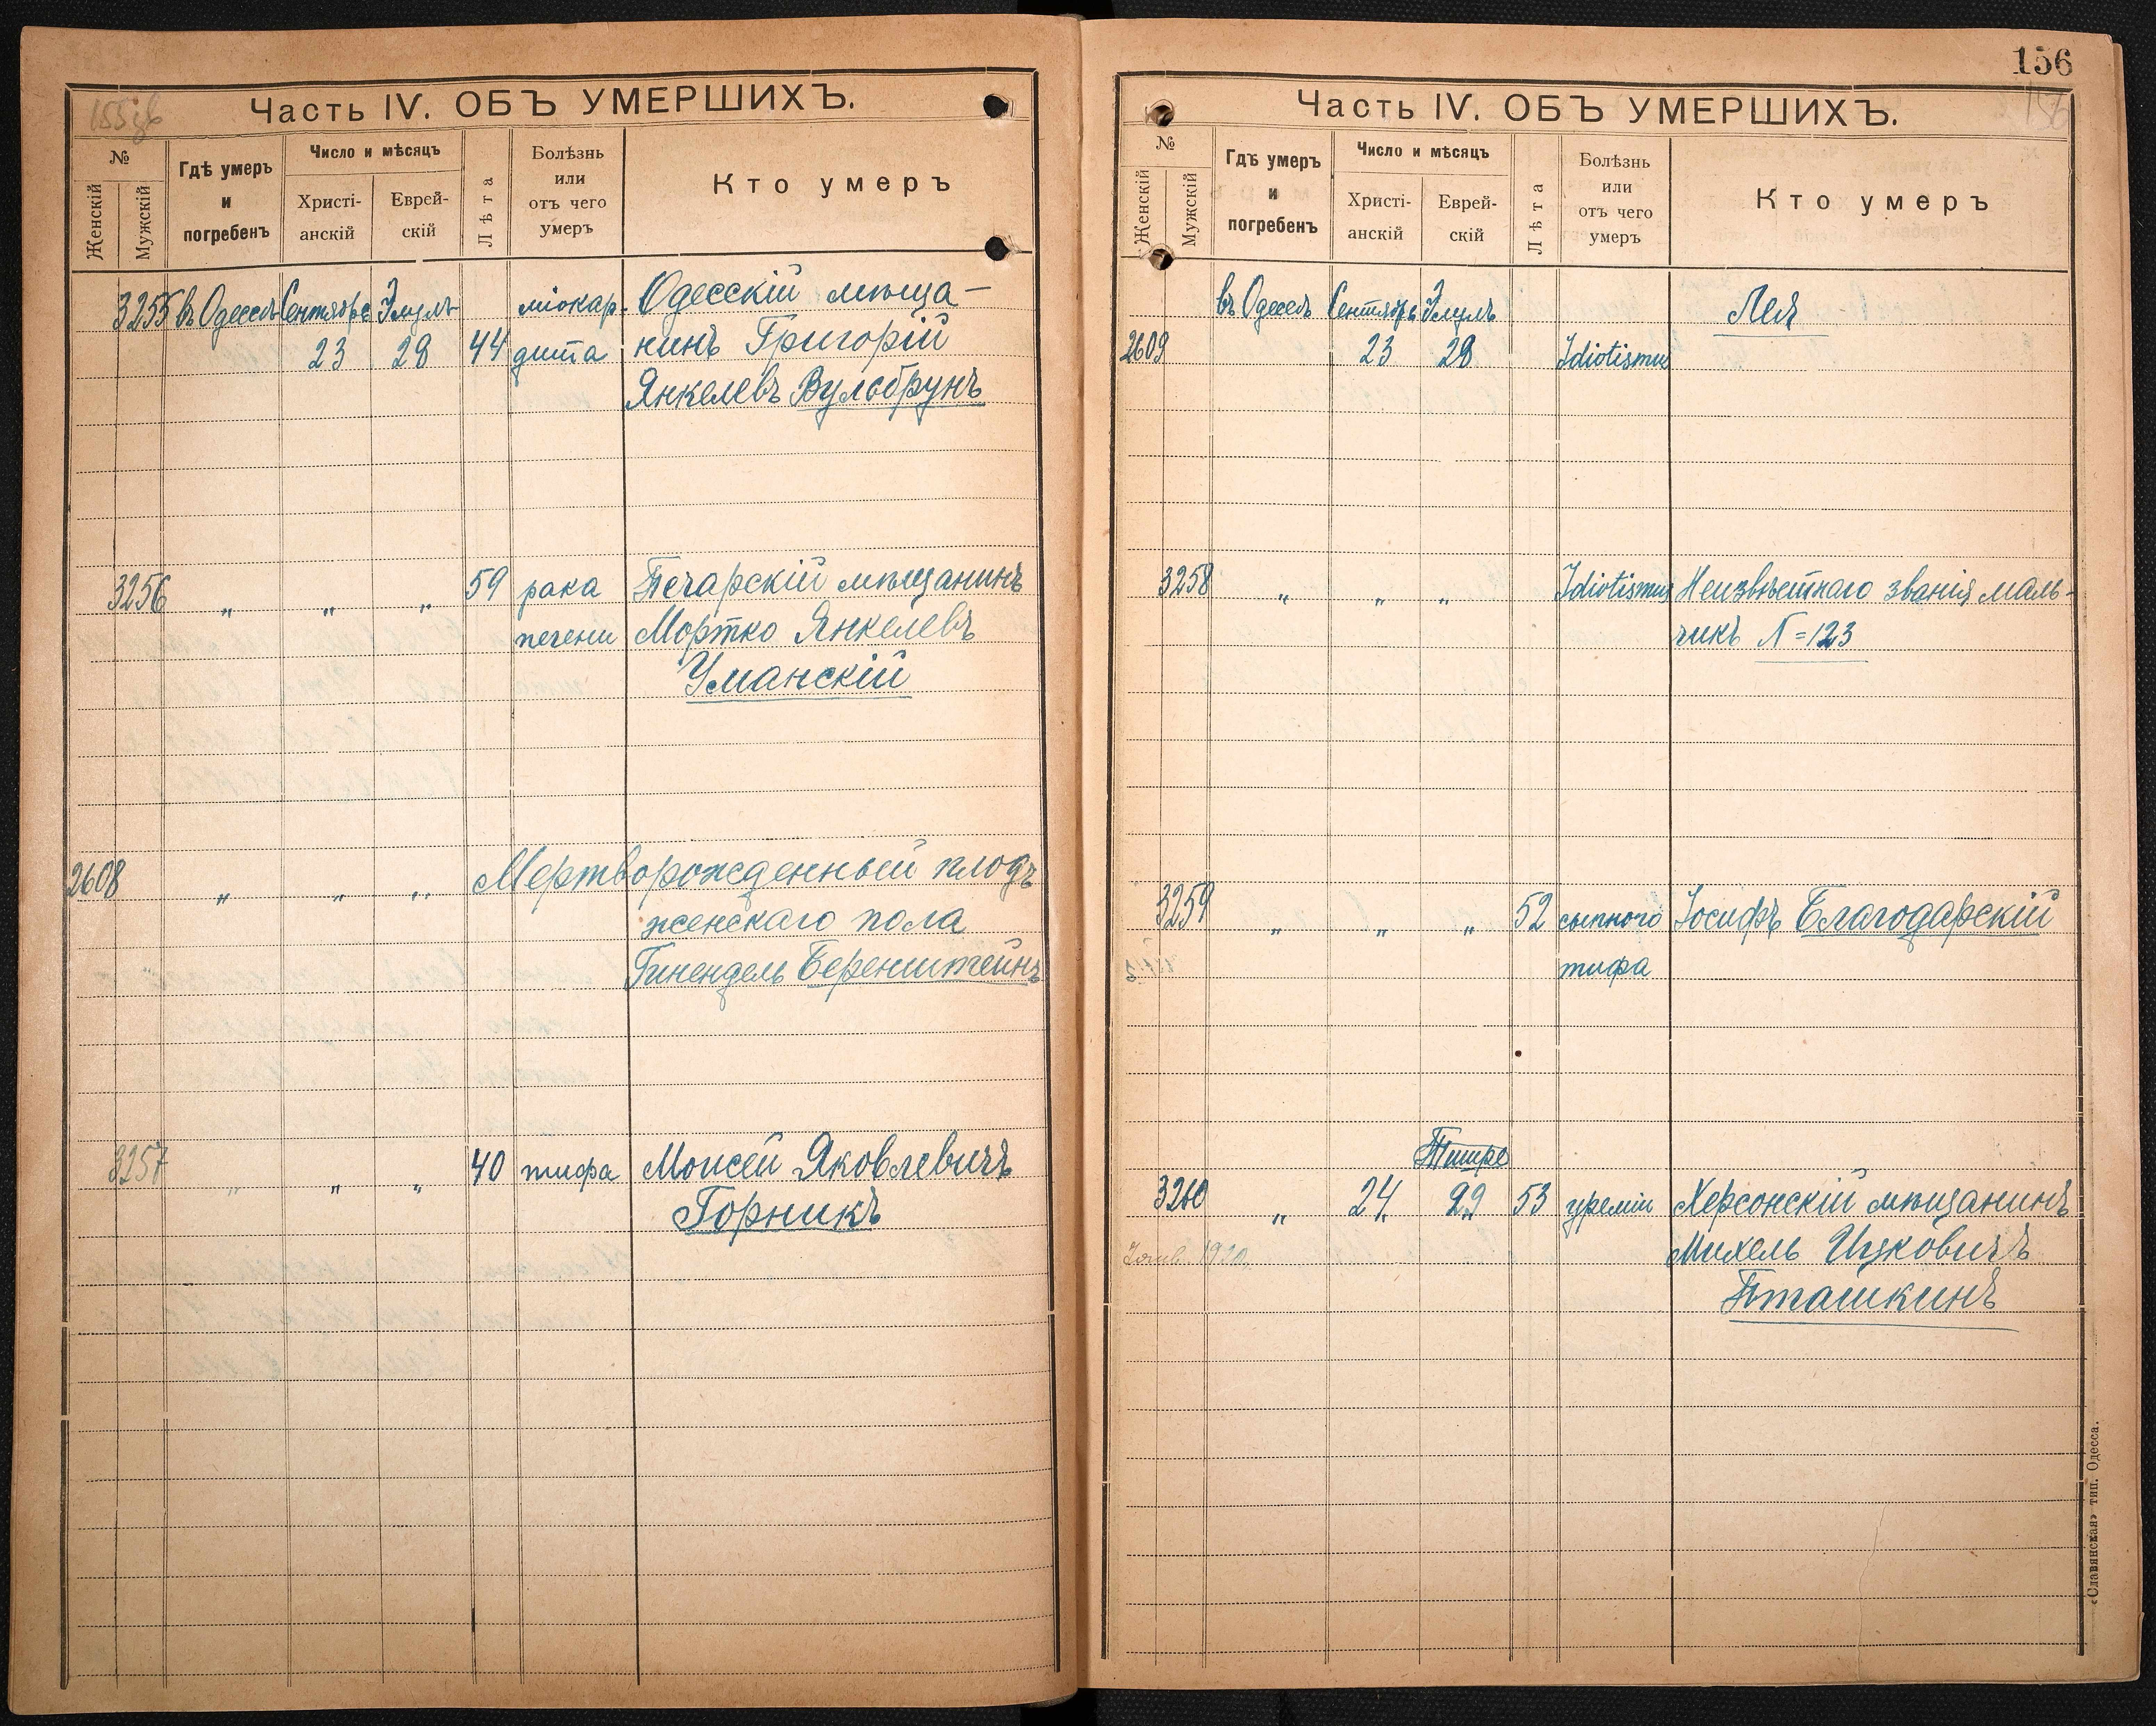 155 об
Часть IV. ОБЪ УМЕРШИХЪ.
№
Женскій
Мужскій
Гдѣ умеръ
и
погребенъ
Число и мѣсяцъ
Христі-
анскій
Еврей-
скій
Лѣта
Болѣзнь
или
отъ чего
умеръ
Кто умеръ
3255 въ Одессѣ Сентября Элулъ міокар- Одесскій мѣща-
23 28 44 дита нинъ Григорій
Янкелевъ Вульбрунъ
3256 „ „ „ 59 рака Печарскій мѣщанинъ
печени Мортко Янкелевъ
Уманскій
2608 „ „ „ Мертворожденный плодъ
женскаго пола
Гинендель Беренштейнъ
3257 „ „ „ 40 тифа Моисей Яковлевичъ
Горникъ
156
156
Часть IV. ОБЪ УМЕРШИХЪ.
№
Женскій
Мужскій
Гдѣ умеръ
и
погребенъ
Число и мѣсяцъ
Христі-
анскій
Еврей-
скій
Лѣта
Болѣзнь
или
отъ чего
умеръ
Кто умеръ
въ Одессѣ Сентябрь Элулъ Лея
2609 23 28 Idiotismus
3258 „ „ „ Idiotismus Неизвѣстнаго званія маль-
чикъ N=123
3259 „ „ „ 52 сыпного Іосифъ Благодарскій
тифа
Тишре
3260 „ 24 29 53 уреміи Херсонскій мѣщанинъ
1920 Михель Ицковичъ
Пташкинъ
«Славянская» тип. Одесса.